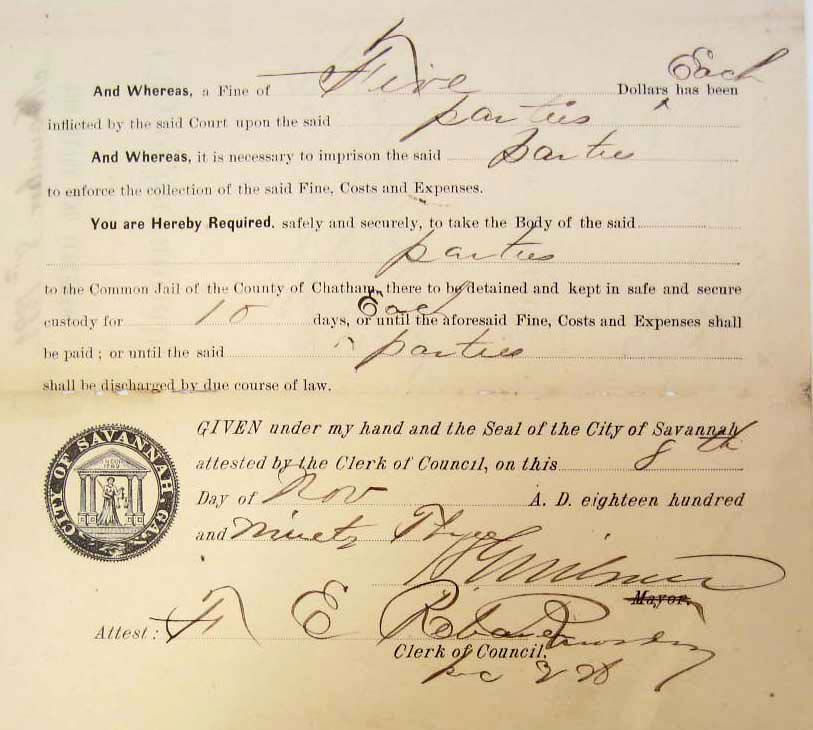 Each
And Whereas, a Fine of Five Dollars ^ has been
inflicted by the said Court upon the said parties
And Whereas, it is necessary to imprison the said parties
to enforce the collection of the said Fine, Costs and Expenses.
You are Hereby Required, safely and securely, to take the Body of the said
parties
to the Common Jail of the County of Chatham, there to be detained and kept in safe and secure
Each
custody for 10 days, or until the aforesaid Fine, Costs and Expenses shall
be paid; or until the said parties
shall be discharged by due course of law.
GIVEN under my hand and the Seal of the City of Savannah
attested by the Clerk of Council, on this 8th
Day of Nov A. D. eighteen hundred
and Ninety Three
CITY OF SAVANNAH, GA.
Mayor.
Attest: F E
Clerk of Council.